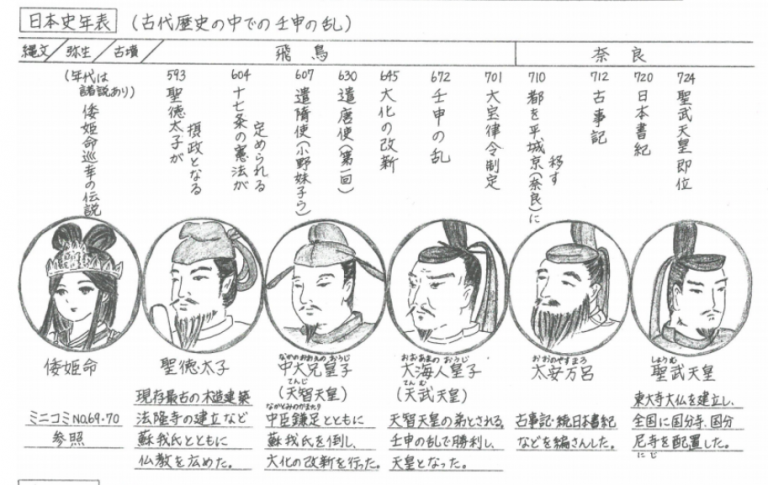 日本史年表 (古代歴史の中での壬申の乱)
縄文 弥生 古墳 飛鳥 奈良
(年代は
諸説あり)
倭姫命巡幸の伝説
593
聖徳太子が
摂政となる
604
十七条の憲法が
定められる
607
遣隋使(小野妹子ら)
630
遣唐使(第一回)
645
大化の改新
672
壬申の乱
701
大宝律令制定
710
都を平城京(奈良)に
移す
712
古事記
720
日本書紀
724
聖武天皇即位
倭姫命
ミニコミNO,69・70
参照
聖徳太子
現存最古の木造建築
法隆寺の建立など
蘇我氏とともに
仏教を広めた。
なかのおおえのおうじ
中大兄皇子
てんじ
(天智天皇)
なかとみのかまたり
中臣鎌足とともに
蘇我氏を倒し、
大化の改新を行った。
おおあまのおうじ
大海人皇子
てんむ
(天武天皇)
天智天皇の弟とされる。
壬申の乱で勝利し、
天皇となった。
おおのやすまろ
太安万呂
古事記・続日本書紀
などを編さんした。
しょうむ
聖武天皇
東大寺大仏を建立し、
全国に国分寺、国分
尼寺を配置した。
にじ